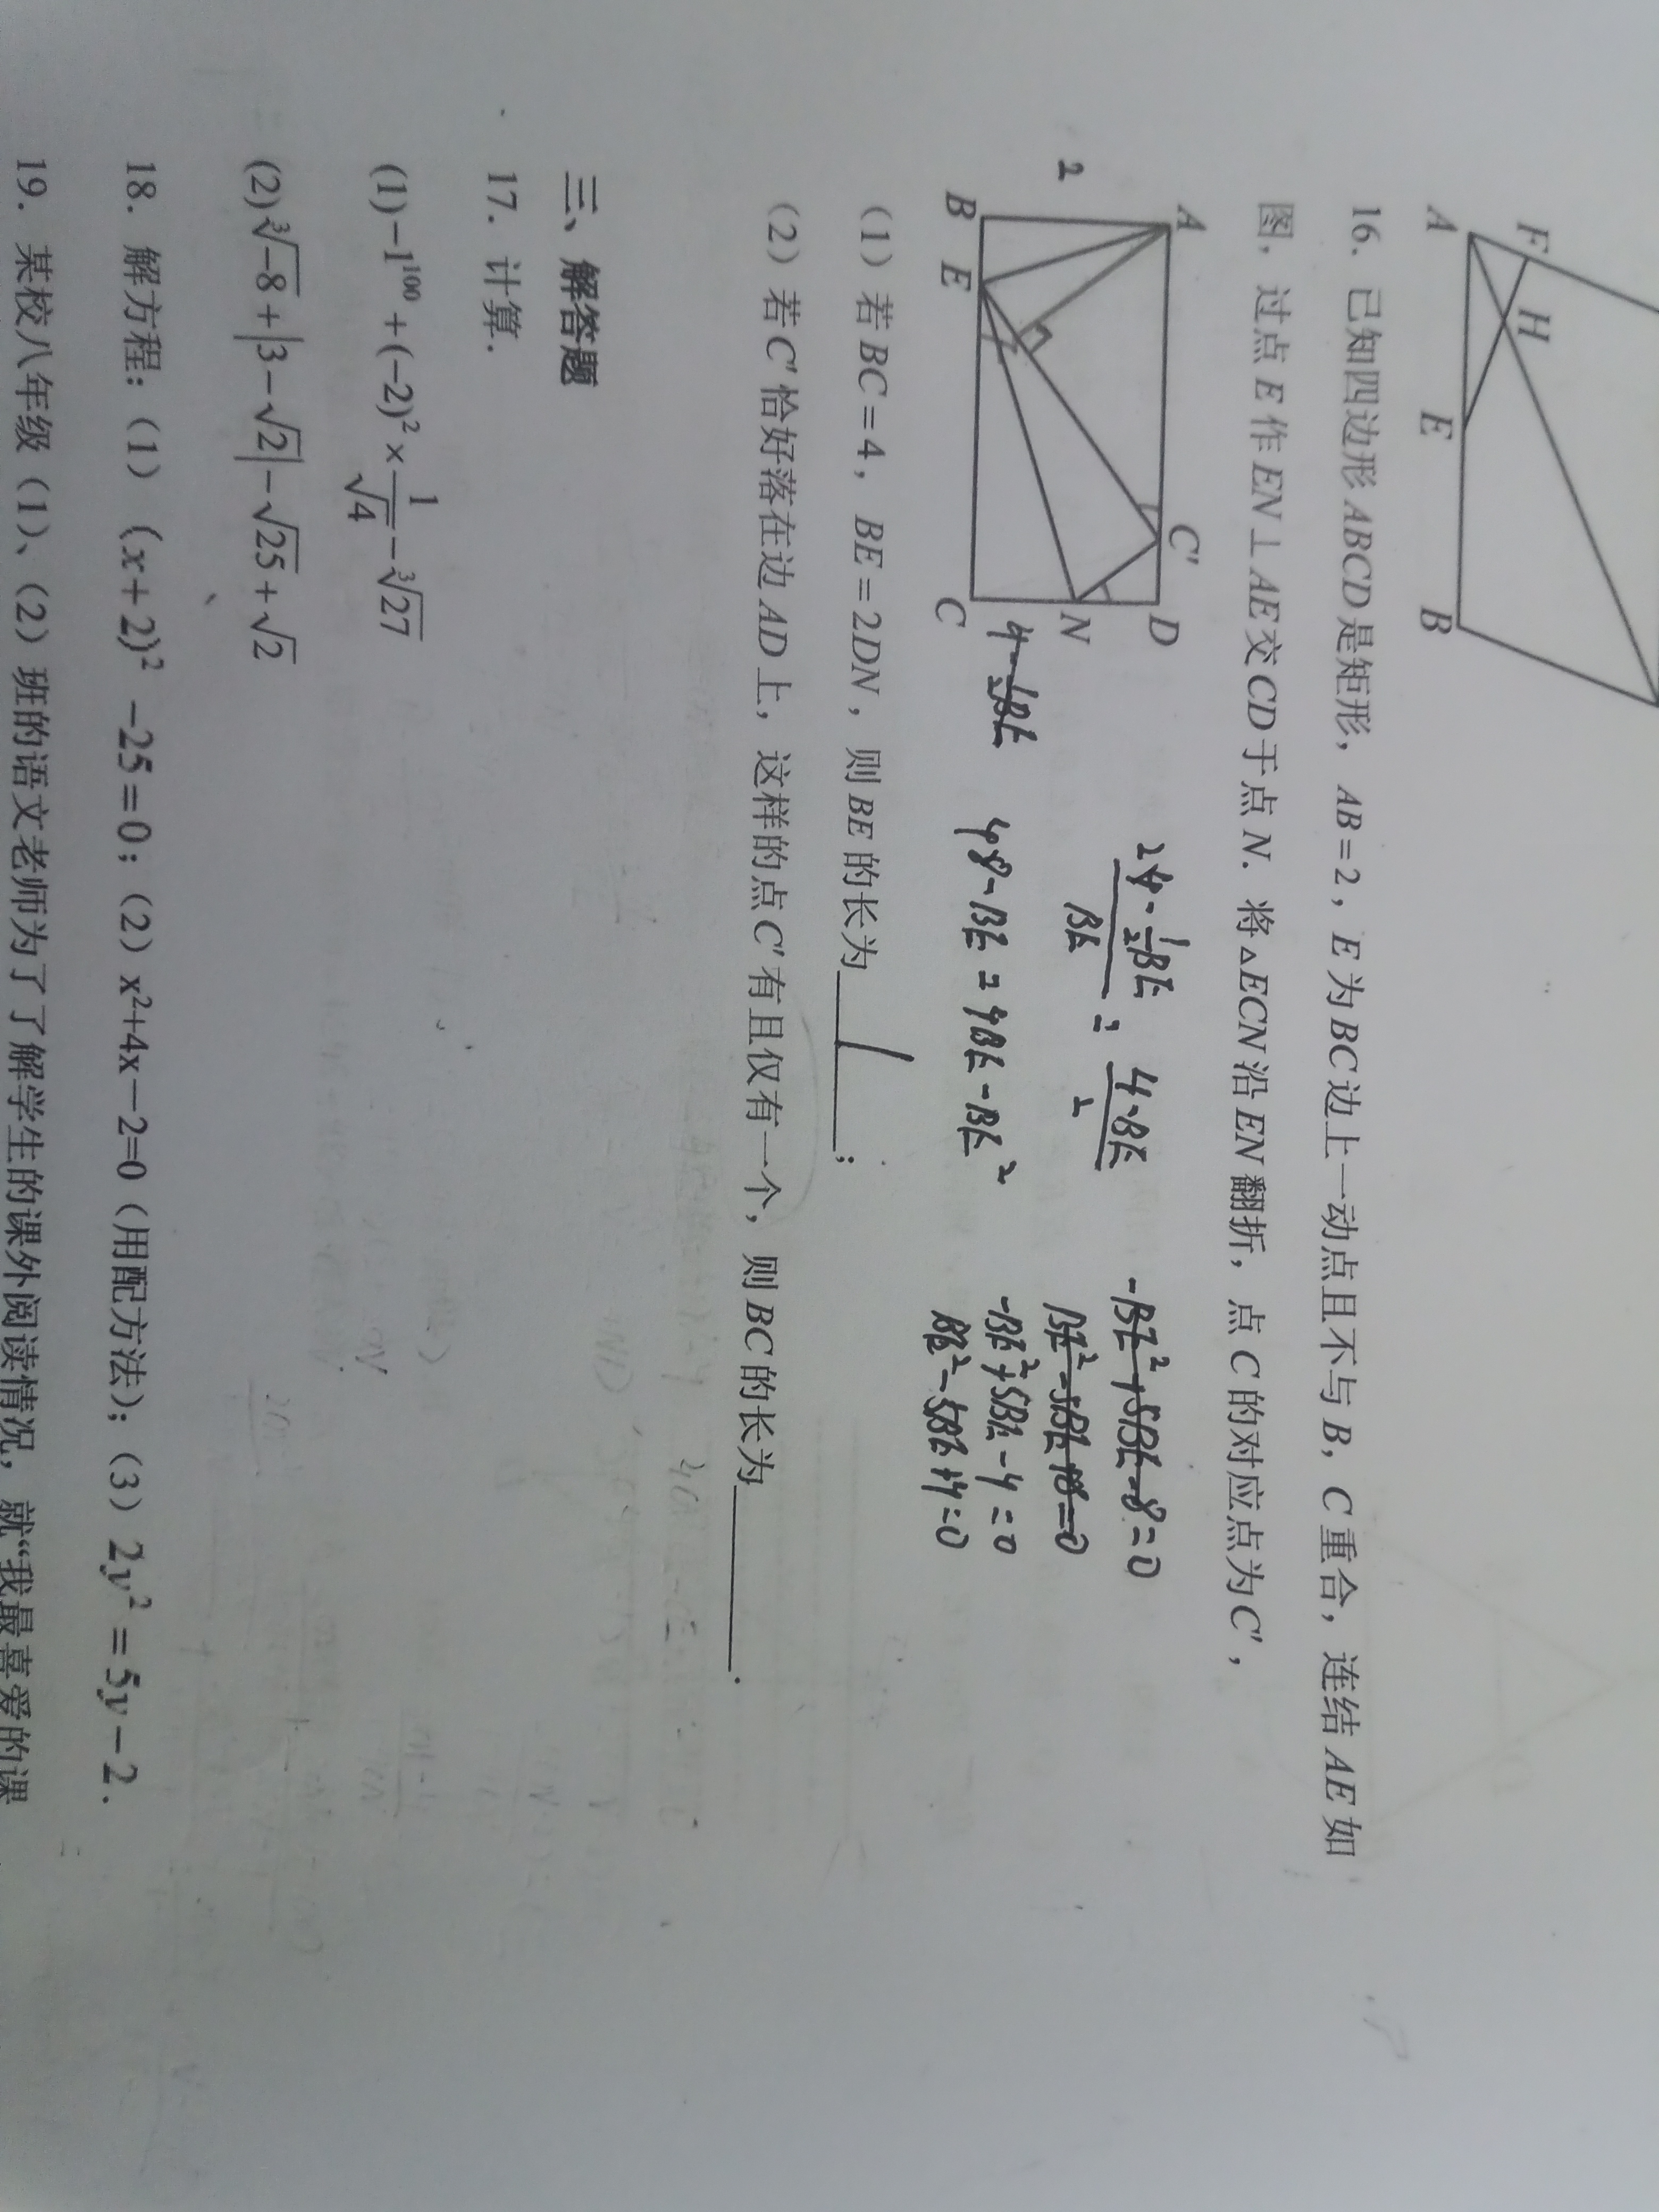 F
H
A
E
B
16. 已知四边形ABCD是矩形，AB=2，E为BC边上一动点且不与B，C重合，连结AE如
图，过点E作EN⊥AE交CD于点N. 将△ECN沿EN翻折，点C的对应点为C′，
A
C′
D
2
N
B
E
C
4-½BE
2-½BE/BE = 4-BE/2
4-BE=4BE-BE²
-BE²+5BE-8=0
BE²-5BE+8=0
-BE²+5BE-4=0
BE²-5BE+4=0
（1）若BC=4，BE=2DN，则BE的长为 1 ；
（2）若C′恰好落在边AD上，这样的点C′有且仅有一个，则BC的长为______.
三、解答题
17. 计算.
(1)-1¹⁰⁰+(-2)²×1/√4-∛27
(2)∛-8+|3-√2|-√25+√2
18. 解方程：（1）(x+2)²-25=0；（2）x²+4x-2=0（用配方法）；（3）2y²=5y-2.
19. 某校八年级（1）、（2）班的语文老师为了了解学生的课外阅读情况，就“我最喜爱的课